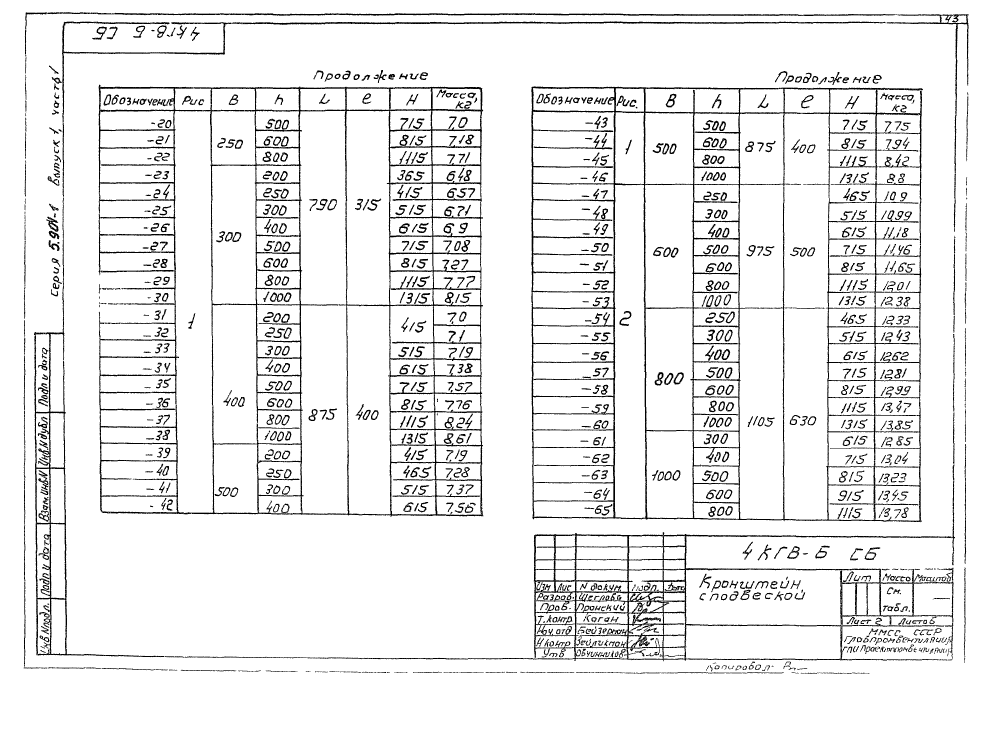 43
4КГВ-Б СБ
Серия 5.904-1 Выпуск 1, часть 1
Продолжение
Обозначение Рис В h L e H Масса, кг
-20 1 250 500 790 315 715 7,0
-21 600 815 7,18
-22 800 1115 7,71
-23 300 200 365 6,48
-24 250 415 6,57
-25 300 515 6,71
-26 400 615 6,9
-27 500 715 7,08
-28 600 815 7,27
-29 800 1115 7,77
-30 1000 1315 8,15
-31 400 200 875 400 415 7,0
-32 250 7,1
-33 300 515 7,19
-34 400 615 7,38
-35 500 715 7,57
-36 600 815 7,76
-37 800 1115 8,24
-38 1000 1315 8,61
-39 500 200 415 7,19
-40 250 465 7,28
-41 300 515 7,37
-42 400 615 7,56
Продолжение
Обозначение Рис. В h L e H Масса, кг
-43 1 500 500 875 400 715 7,75
-44 600 815 7,94
-45 800 1115 8,42
-46 1000 1315 8,8
-47 2 600 250 975 500 465 10,9
-48 300 515 10,99
-49 400 615 11,18
-50 500 715 11,46
-51 600 815 11,65
-52 800 1115 12,01
-53 1000 1315 12,38
-54 800 250 1105 630 465 12,33
-55 300 515 12,43
-56 400 615 12,62
-57 500 715 12,81
-58 600 815 12,99
-59 800 1115 13,47
-60 1000 1315 13,85
-61 1000 300 615 12,85
-62 400 715 13,04
-63 500 815 13,23
-64 600 915 13,45
-65 800 1115 13,78
Инв.№подл. Подп и дата Взам.инв.№ Инв.№дубл. Подп и дата
4КГВ-Б СБ
Изм Лис N докум. Подп. Дата
Разраб. Щеглова
Пров. Пронский
Т.контр. Коган
Нач.отд Бейзерман
Н.контр Зейликман
Утв Овчинников
Кронштейн с подвеской
Лит Масса Масштаб
См. табл.
Лист 2 Листов
ММСС СССР
Главпромвентиляция
ГПИ Проектпромвентиляция
Копировал